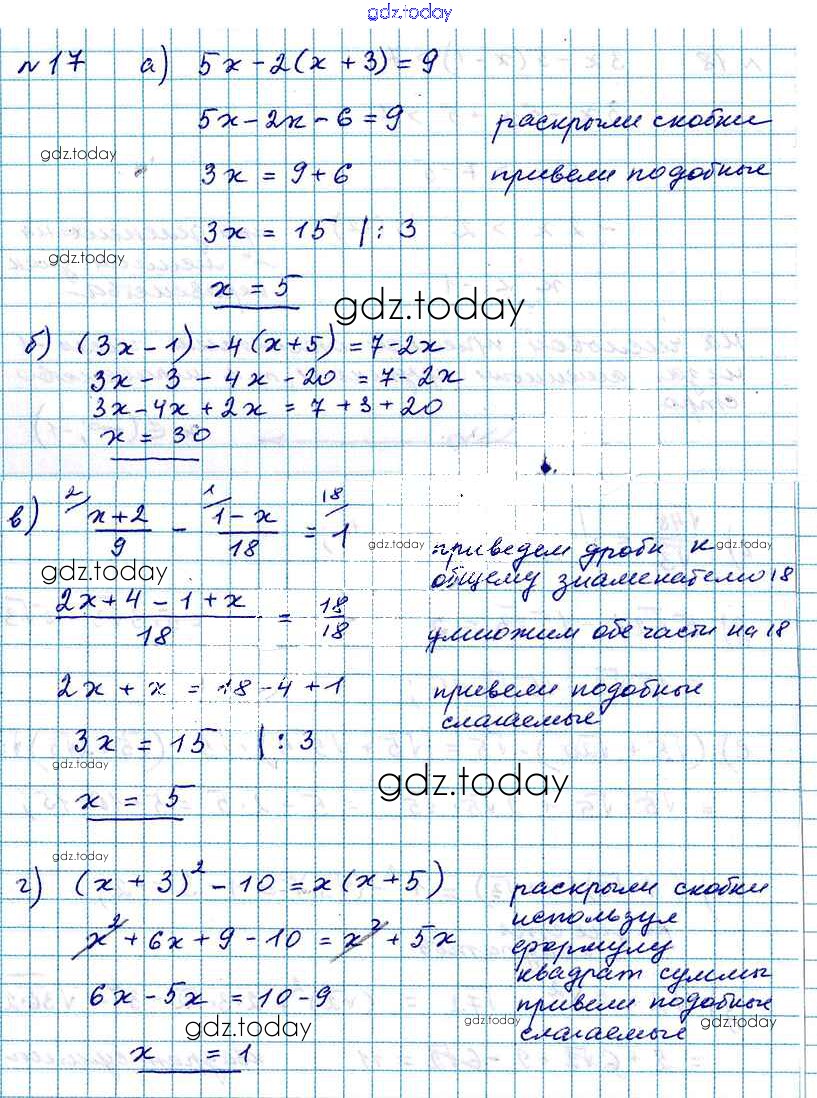 gdz.today
№17 а) 5x-2(x+3)=9
5x-2x-6=9 раскрыли скобки
gdz.today
3x = 9+6 привели подобные
3x = 15 |: 3
gdz.today
x = 5
gdz.today
б) (3x-1)-4(x+5)=7-2x
3x-3-4x-20=7-2x
3x-4x+2x=7+3+20
x = 30
в) 2/ (x+2)/9 - 1/ (1-x)/18 = 18/ 1
приведем дроби к
gdz.today gdz.today
gdz.today
общему знаменателю 18
(2x+4-1+x)/18 = 18/18
умножим обе части на 18
2x+x = 18-4+1 привели подобные
слагаемые
3x = 15 |: 3
gdz.today
gdz.today
x = 5
gdz.today
г) (x+3)²-10=x(x+5) раскрыли скобки
используя
x²+6x+9-10=x²+5x формулу
квадрат суммы
6x-5x=10-9 привели подобные
gdz.today gdz.today gdz.today
слагаемые
x = 1